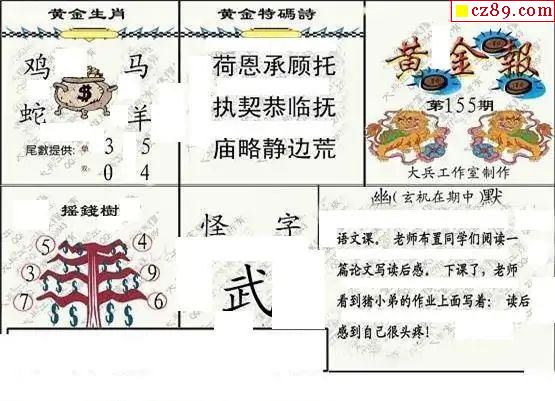 cz89.com
黄金生肖
鸡 马
蛇 羊
$
尾數提供: 单 3 5
双 0 4
黄金特碼詩
荷恩承顾托
执契恭临抚
庙略静边荒
黄金報
第155期
大兵工作室制作
摇錢樹
5 4
3 9
7 6
怪字
武
幽(玄机在期中)默
语文课。老师布置同学们阅读一
篇论文写读后感。下课了,老师
看到猪小弟的作业上面写着:读后
感到自己很头疼!